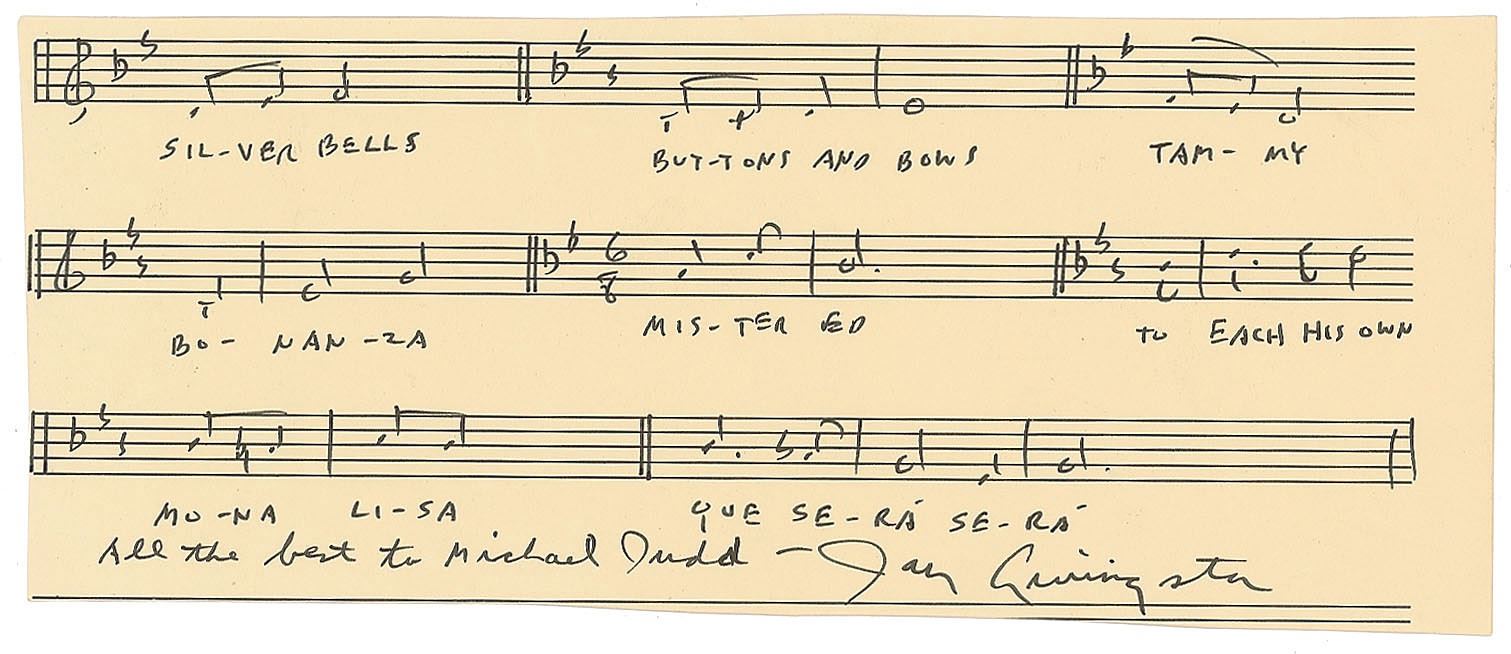 SIL-VER BELLS BUT-TONS AND BOWS TAM- MY
6
8
BO- NAN-ZA MIS-TER ED TO EACH HIS OWN
MO-NA LI-SA QUE SE-RÁ SE-RÁ
All the best to Michael Judd - Jay Livingston